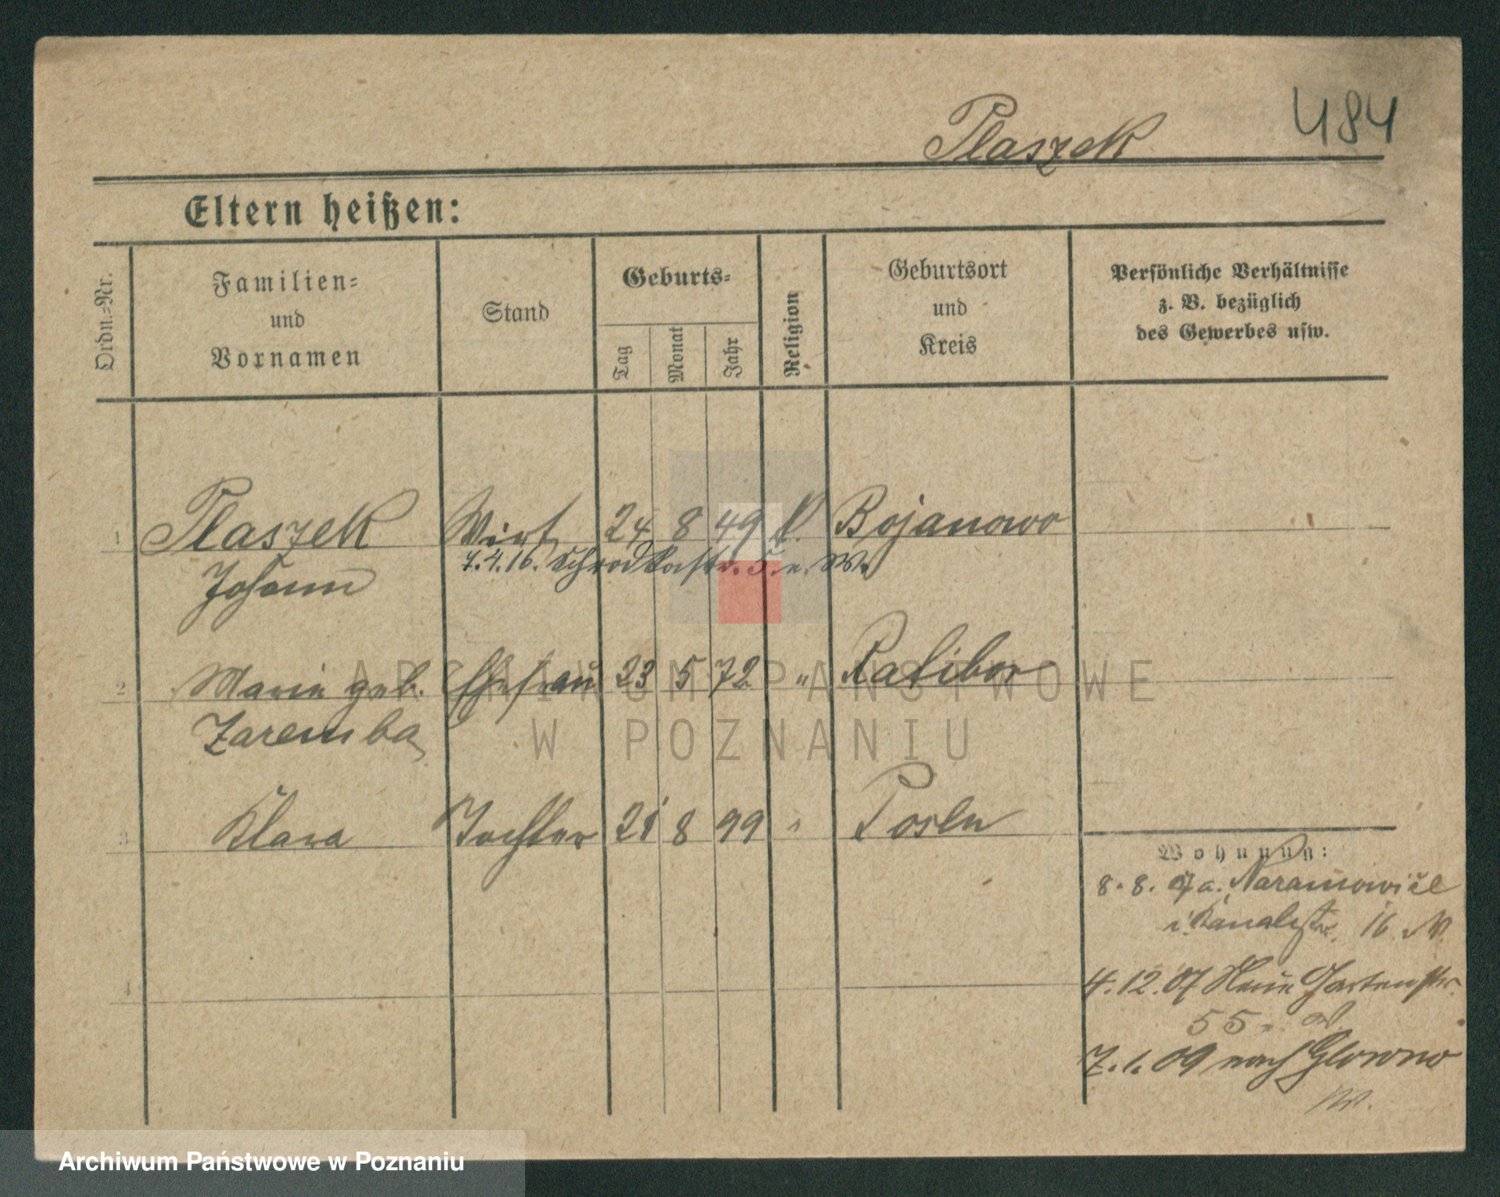 484
Plaszek
Eltern heißen:
Ordn.-Nr.
Familien- und Vornamen
Stand
Geburts-
Tag
Monat
Jahr
Religion
Geburtsort und Kreis
Persönliche Verhältnisse
z. B. bezüglich
des Gewerbes usw.
1 Plaszek Wirt 24 8 49 k. Bojanowo
Johann 7.4.16. Schrodkastr. 5. n. W.
2 Maria geb. Ehefrau 23 5 72 " Ratibor
Zaremba
3 Klara Tochter 21 8 99 " Posen
4
Wohnung:
8. 8. 07 a. Naramowice
i. Kanalstr. 16
4. 12. 07 Neue Gartenstr.
55
7. 1. 09 nach Glowno
W.
ARCHIWUM PAŃSTWOWE
W POZNANIU
Archiwum Państwowe w Poznaniu